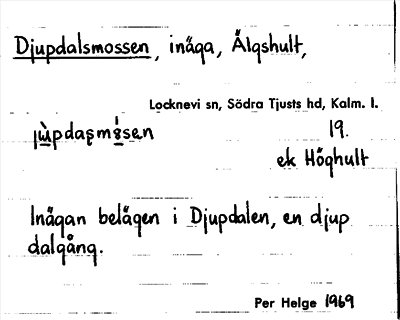 Djupdalsmossen, inäga, Älgshult,
Locknevi sn, Södra Tjusts hd, Kalm. l.
19.
ek Höghult
Inägan belägen i Djupdalen, en djup
dalgång.
Per Helge 1969